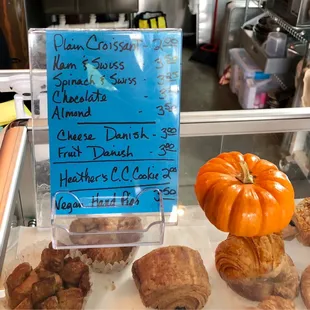 Plain Croissant -
Ham & Swiss
Spinach & Swiss
Chocolate
Almond
Cheese Danish -
Fruit Danish -
Heather's C.C. Cookie
Vegan Hand Pies